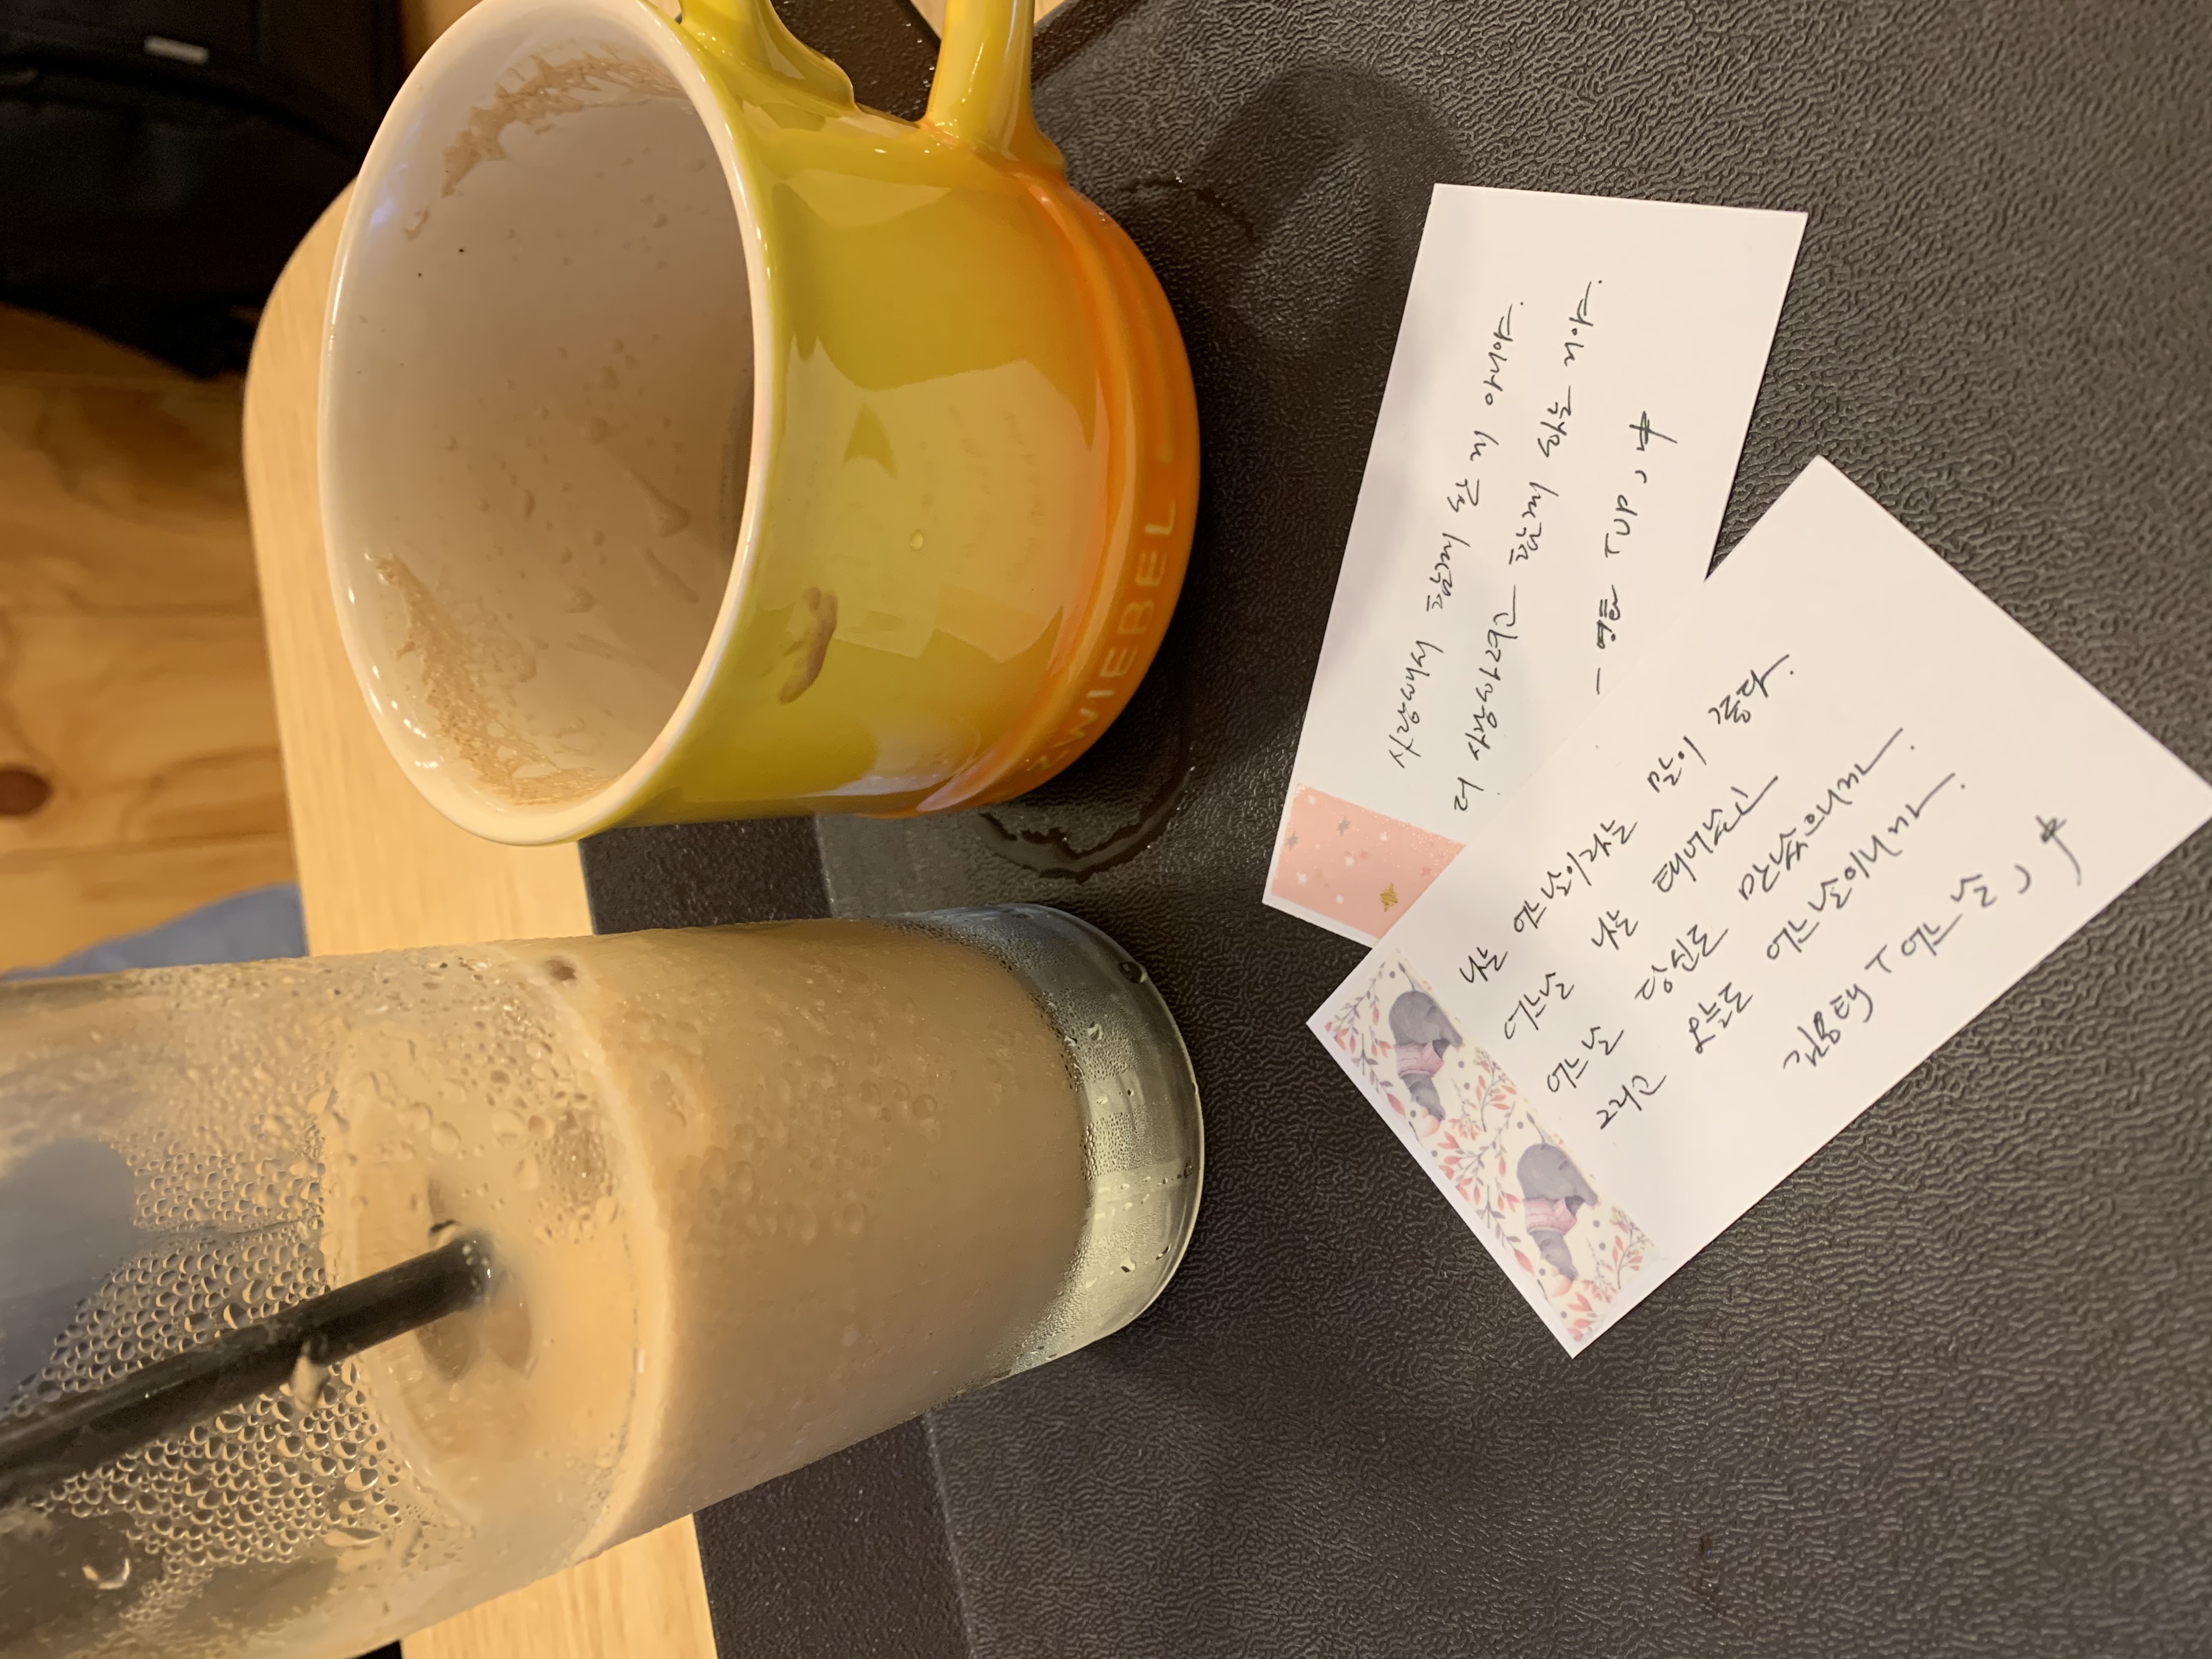 ZWIEBEL
사랑해서 함께 한 게 아니야.
더 사랑하려고 함께 하는 거야.
- 영화 「UP」 中
나는 어느날이라는 말이 좋다.
어느날 나는 태어났고
어느날 당신도 만났으니까.
그리고 오늘도 어느날이니까.
김용택 「어느날」 中